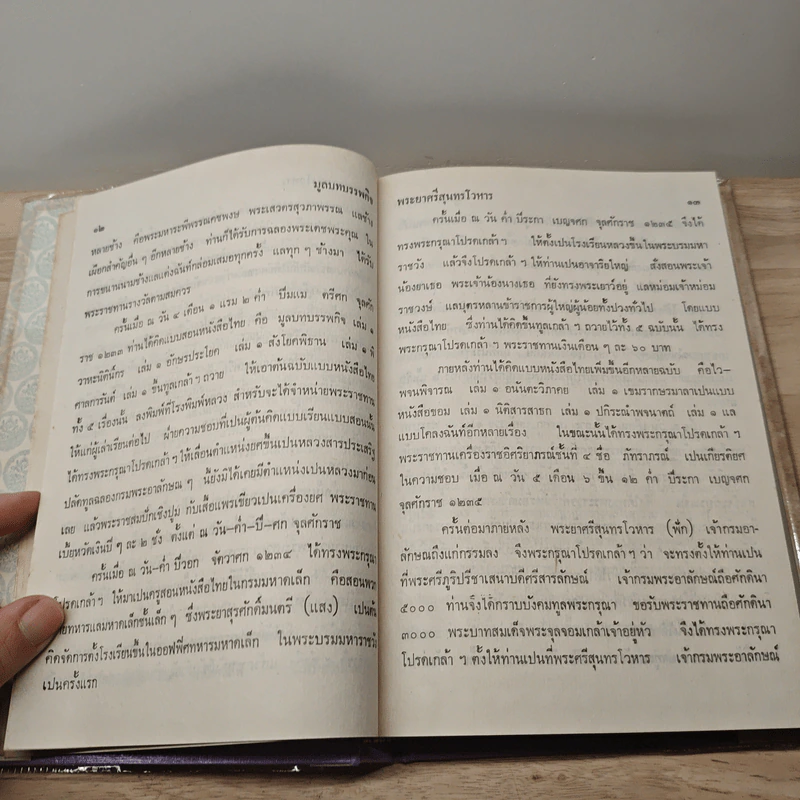 ๑๒
มูลบทบรรพกิจ
หลายช้าง คือพระมหาระพีพรรณคชพงษ พระเสวตรสุวภาพรรณ แลช้าง
เผือกสำคัญอื่น ๆ อีกหลายช้าง ท่านก็ได้รับการฉลองพระเดชพระคุณ ใน
การขนานนามช้างแลแต่งฉันท์กล่อมเสมอทุกครั้ง แลทุก ๆ ช้างมา ได้รับ
พระราชทานรางวัลตามสมควร
ครั้นเมื่อ ณ วัน ๔ เดือน ๑ แรม ๒ ค่ำ ปีมแม ตรีศก จุลศัก
ราช ๑๒๓๓ ท่านได้คิดแบบสอนหนังสือไทย คือ มูลบทบรรพกิจ เล่ม ๑
วาหะนิติ์นิกร เล่ม ๑ อักษรประโยค เล่ม ๑ สังโยคพิธาน เล่ม ๑ พิ
ศาลการันต์ เล่ม ๑ ขึ้นทูลเกล้า ฯ ถวาย ให้เอาต้นฉบับแบบหนังสือไทย
ทั้ง ๕ เรื่องนั้น ลงพิมพ์ที่โรงพิมพ์หลวง สำหรับจะได้จำหน่ายพระราชทาน
ให้แก่ผู้เล่าเรียนต่อไป ฝ่ายความชอบที่เปนผู้ต้นคิดแบบเรียนแบบสอนนั้น
ได้ทรงพระกรุณาโปรดเกล้า ฯ ให้เลื่อนตำแหน่งยศขึ้นเปนหลวงสารประเสริฐ
ปลัดทูลฉลองกรมพระอาลักษณ ๆ นี้ยังมิได้เคยมีตำแหน่งเปนหลวงมาก่อน
เลย แล้วพระราชสมปักเชิงปูม กับเสื้อแพรเขียวเปนเครื่องยศ พระราชทาน
เบี้ยหวัดเงินปี ๆ ละ ๒ ชั่ง ตั้งแต่ ณ วัน–ค่ำ–ปี–ศก จุลศักราช
ครั้นเมื่อ ณ วัน–ค่ำ ปีวอก จัตวาศก ๑๒๓๔ ได้ทรงพระกรุณา
โปรดเกล้า ฯ ให้มาเปนครูสอนหนังสือไทยในกรมมหาดเล็ก คือสอนพวก
ทหารแลมหาดเล็กชั้นเล็ก ๆ ซึ่งพระยาสุรศักดิ์มนตรี (แสง) เปนต้น
คิดจัดการตั้งโรงเรียนขึ้นในออฟฟิศทหารมหาดเล็ก ในพระบรมมหาราชวัง
เปนครั้งแรก
พระยาศรีสุนทรโวหาร
๑๓
ครั้นเมื่อ ณ วัน ค่ำ ปีระกา เบญจศก จุลศักราช ๑๒๓๕ จึงได้
ทรงพระกรุณาโปรดเกล้า ฯ ให้ตั้งเปนโรงเรียนหลวงขึ้นในพระบรมมหา
ราชวัง แล้วจึงโปรดเกล้า ฯ ให้ท่านเปนอาจาริยใหญ่ สั่งสอนพระเจ้า
น้องยาเธอ พระเจ้าน้องนางเธอ ที่ยังทรงพระเยาว์อยู่ แลหม่อมเจ้าหม่อม
ราชวงษ์ แลบุตรหลานข้าราชการผู้ใหญ่ผู้น้อยทั้งปวงทั่วไป โดยแบบ
หนังสือไทย ซึ่งท่านได้คิดขึ้นทูลเกล้า ฯ ถวายไว้ทั้ง ๕ ฉบับนั้น ได้ทรง
พระกรุณาโปรดเกล้า ฯ พระราชทานเงินเดือน ๆ ละ ๖๐ บาท
ภายหลังท่านได้คิดแบบหนังสือไทยเพิ่มขึ้นอีกหลายฉบับ คือไว–
พจน์พิจารณ เล่ม ๑ อนันตะวิภาคย เล่ม ๑ เขมรากษรมาลาเปนแบบ
หนังสือขอม เล่ม ๑ นิติสารสาธก เล่ม ๑ ปกิรณำพจนาตถ์ เล่ม ๑ แล
แบบโคลงฉันท์อีกหลายเรื่อง ในขณะนั้นได้ทรงพระกรุณาโปรดเกล้า ฯ
พระราชทานเครื่องราชอิศริยาภรณ์ชั้นที่ ๔ ชื่อ ภัทราภรณ์ เปนเกียรติยศ
ในความชอบ เมื่อ ณ วัน ๕ เดือน ๖ ขึ้น ๑๒ ค่ำ ปีระกา เบญจศก
จุลศักราช ๑๒๓๕
ครั้นต่อมาภายหลัง พระยาศรีสุนทรโวหาร (ฟัก) เจ้ากรมอา–
ลักษณถึงแก่กรรมลง จึงพระกรุณาโปรดเกล้า ฯ ว่า จะทรงตั้งให้ท่านเปน
ที่พระศรีภูริปรีชาเสนาบดีศรีสารลักษณ์ เจ้ากรมพระอาลักษณ์ถือศักดินา
๕๐๐๐ ท่านจึงได้กราบบังคมทูลพระกรุณา ขอรับพระราชทานถือศักดินา
๓๐๐๐ พระบาทสมเด็จพระจุลจอมเกล้าเจ้าอยู่หัว จึงได้ทรงพระกรุณา
โปรดเกล้า ฯ ตั้งให้ท่านเปนที่พระศรีสุนทรโวหาร เจ้ากรมพระอาลักษณ์